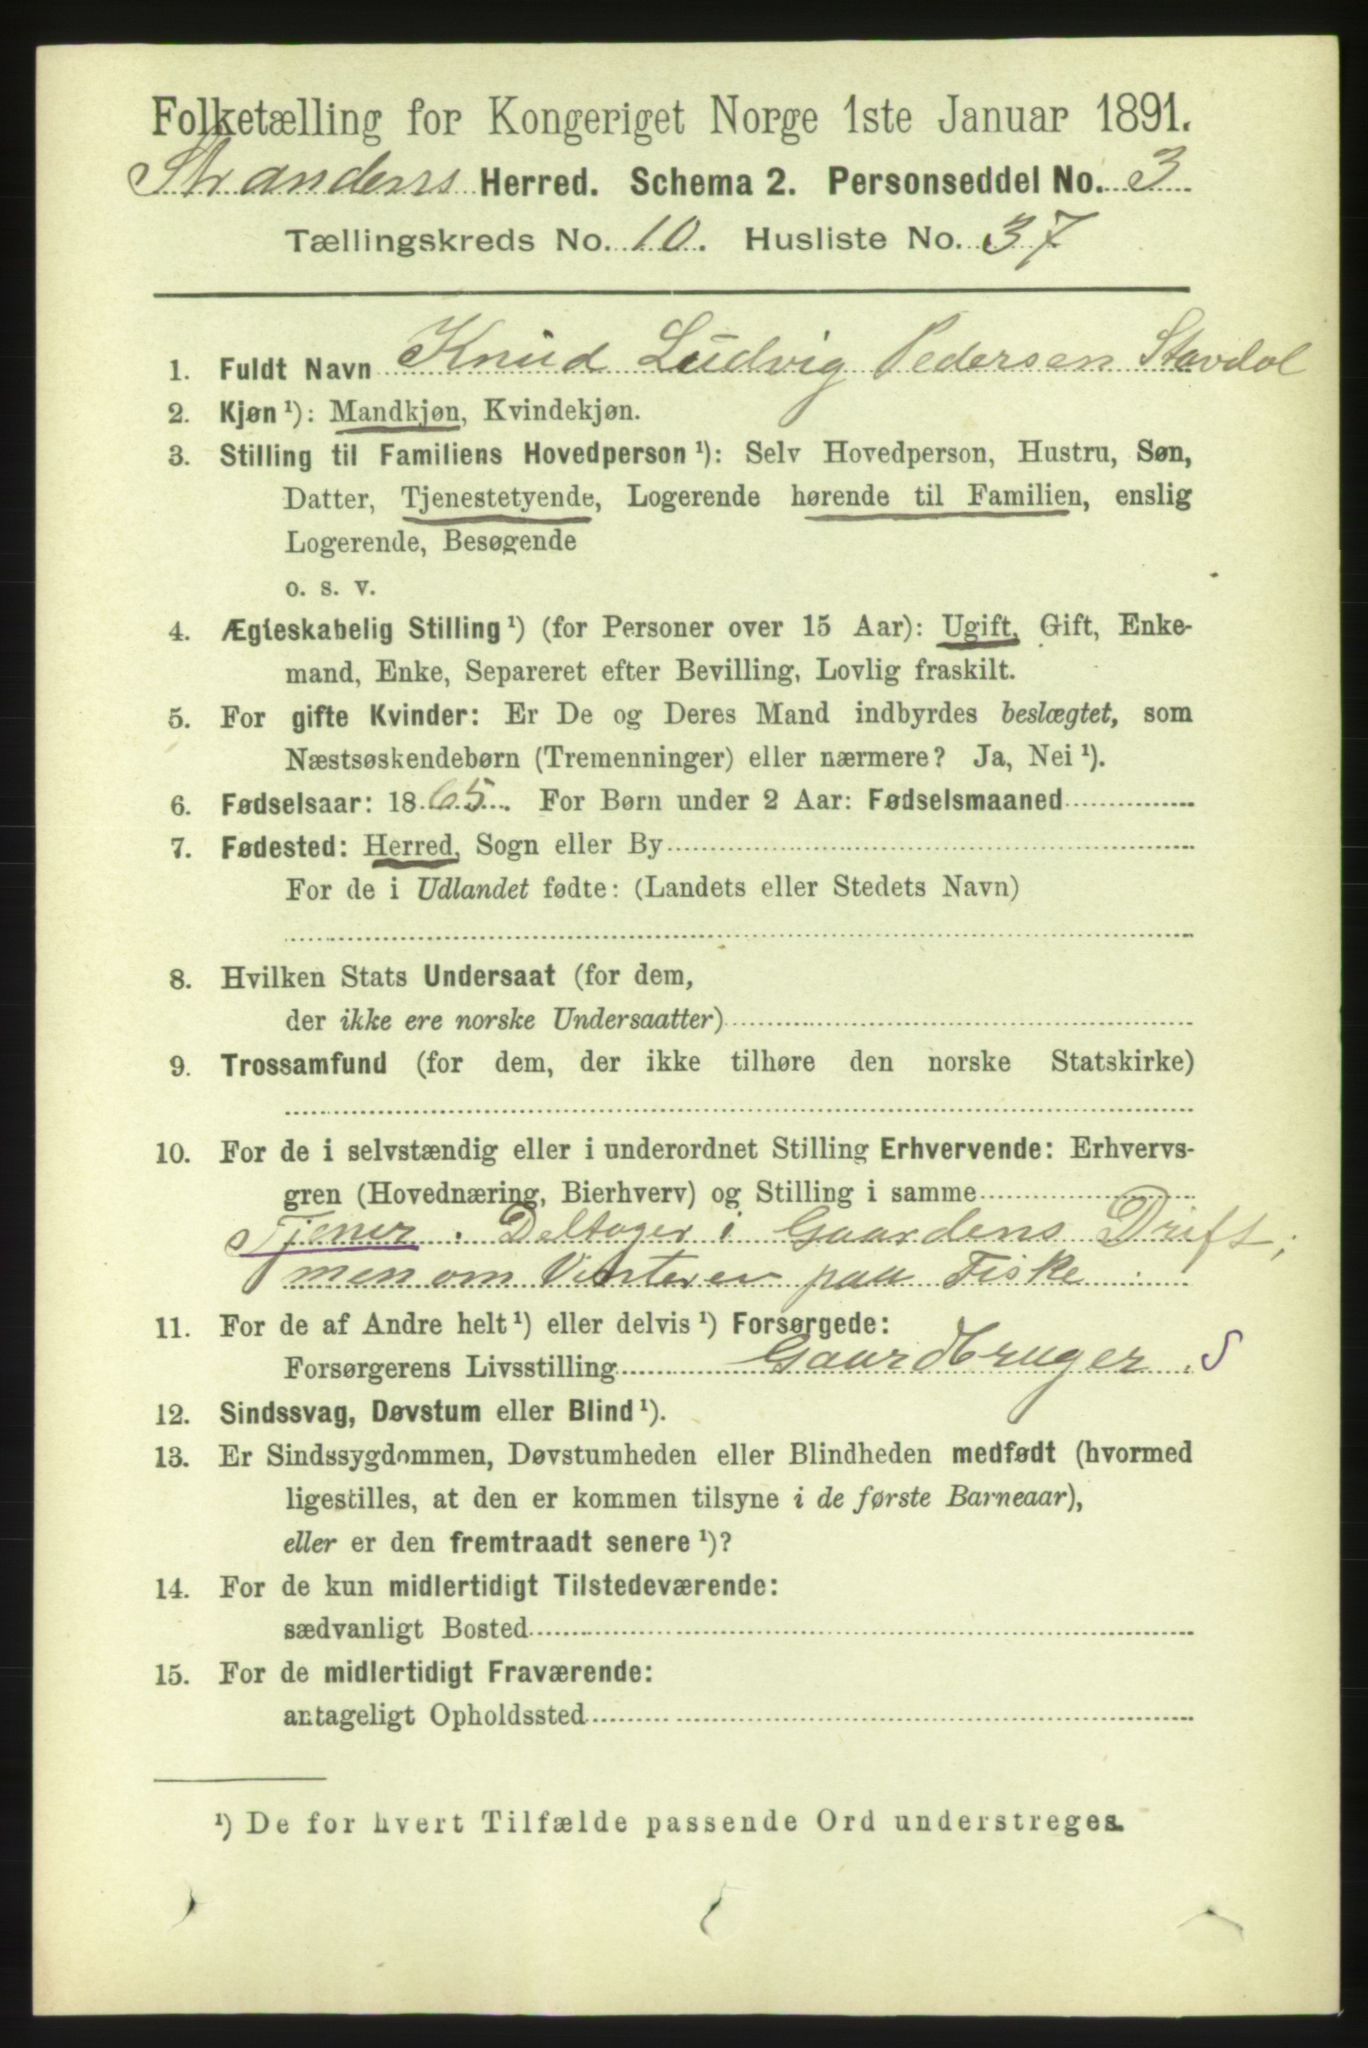 Folketælling for Kongeriget Norge 1ste Januar 1891.
Strandens Herred. Schema 2. Personseddel No. 3
Tællingskreds No. 10. Husliste No. 37
1. Fuldt Navn Knud Ludvig Pedersen Stavdal
2. Kjøn ¹): Mandkjøn, Kvindekjøn.
3. Stilling til Familiens Hovedperson ¹): Selv Hovedperson, Hustru, Søn,
Datter, Tjenestetyende, Logerende hørende til Familien, enslig
Logerende, Besøgende
o. s. v.
4. Ægteskabelig Stilling ¹) (for Personer over 15 Aar): Ugift, Gift, Enke-
mand, Enke, Separeret efter Bevilling, Lovlig fraskilt.
5. For gifte Kvinder: Er De og Deres Mand indbyrdes beslægtet, som
Næstsøskendebørn (Tremenninger) eller nærmere? Ja, Nei ¹).
6. Fødselsaar: 1865. For Børn under 2 Aar: Fødselsmaaned
7. Fødested: Herred, Sogn eller By
For de i Udlandet fødte: (Landets eller Stedets Navn)
8. Hvilken Stats Undersaat (for dem,
der ikke ere norske Undersaatter)
9. Trossamfund (for dem, der ikke tilhøre den norske Statskirke)
10. For de i selvstændig eller i underordnet Stilling Erhvervende: Erhvervs-
gren (Hovednæring, Bierhverv) og Stilling i samme
Tjener. Deltager i Gaardens Drift,
men om Vinteren paa Fiske
11. For de af Andre helt ¹) eller delvis ¹) Forsørgede:
Forsørgerens Livsstilling Gaardbruger. S
12. Sindssvag, Døvstum eller Blind ¹).
13. Er Sindssygdommen, Døvstumheden eller Blindheden medfødt (hvormed
ligestilles, at den er kommen tilsyne i de første Barneaar),
eller er den fremtraadt senere ¹)?
14. For de kun midlertidigt Tilstedeværende:
sædvanligt Bosted
15. For de midlertidigt Fraværende:
antageligt Opholdssted
¹) De for hvert Tilfælde passende Ord understreges.